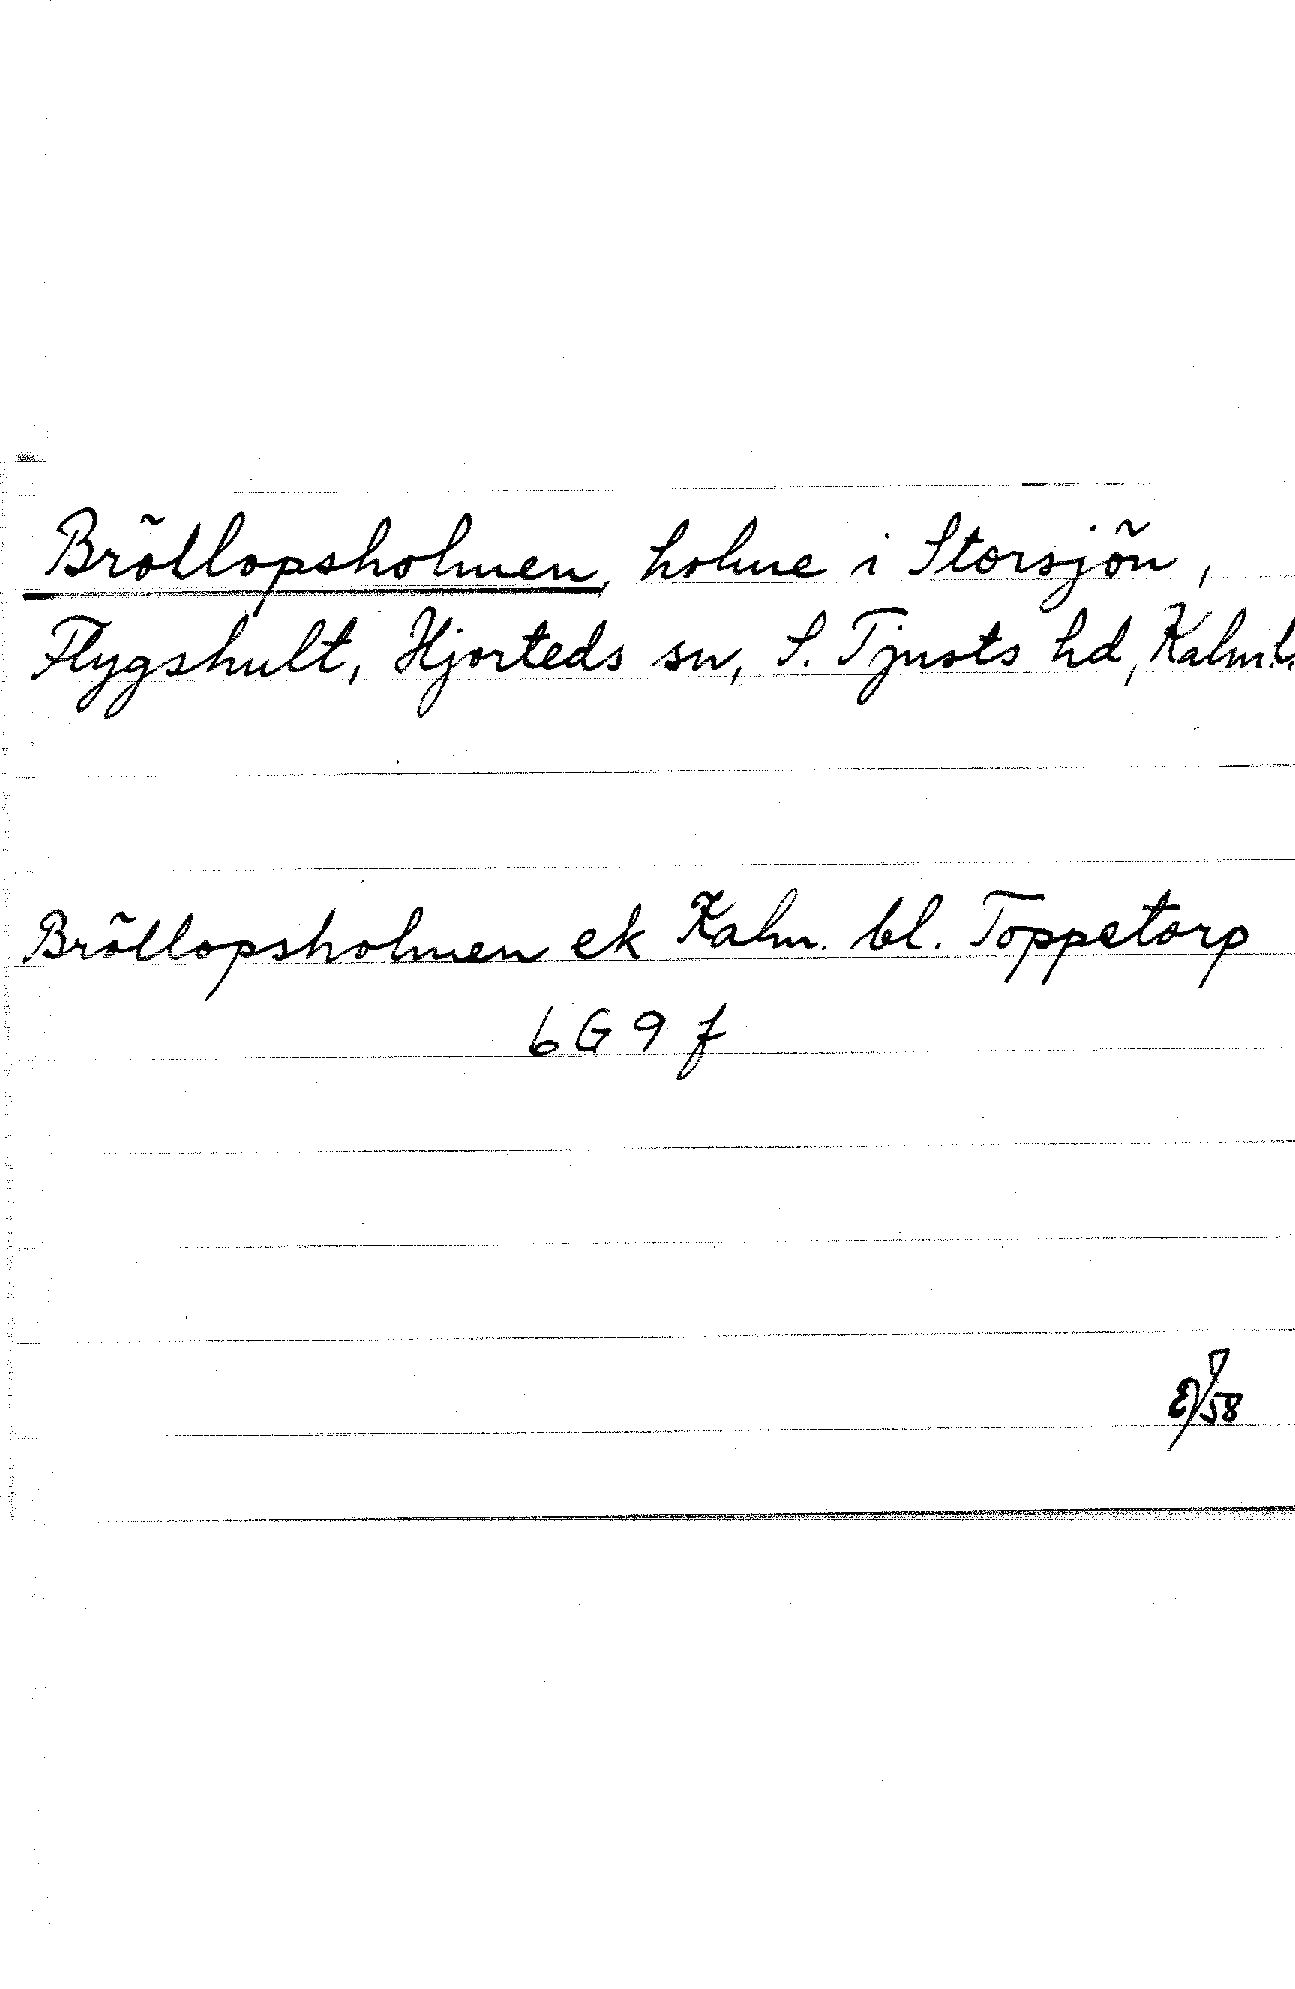 Bröllopsholmen, holme i Storsjön,
Flygshult, Hjorteds sn, S. Tjusts hd, Kalm.l.
Bröllopsholmen ek Kalm. bl. Toppetorp
6G9f